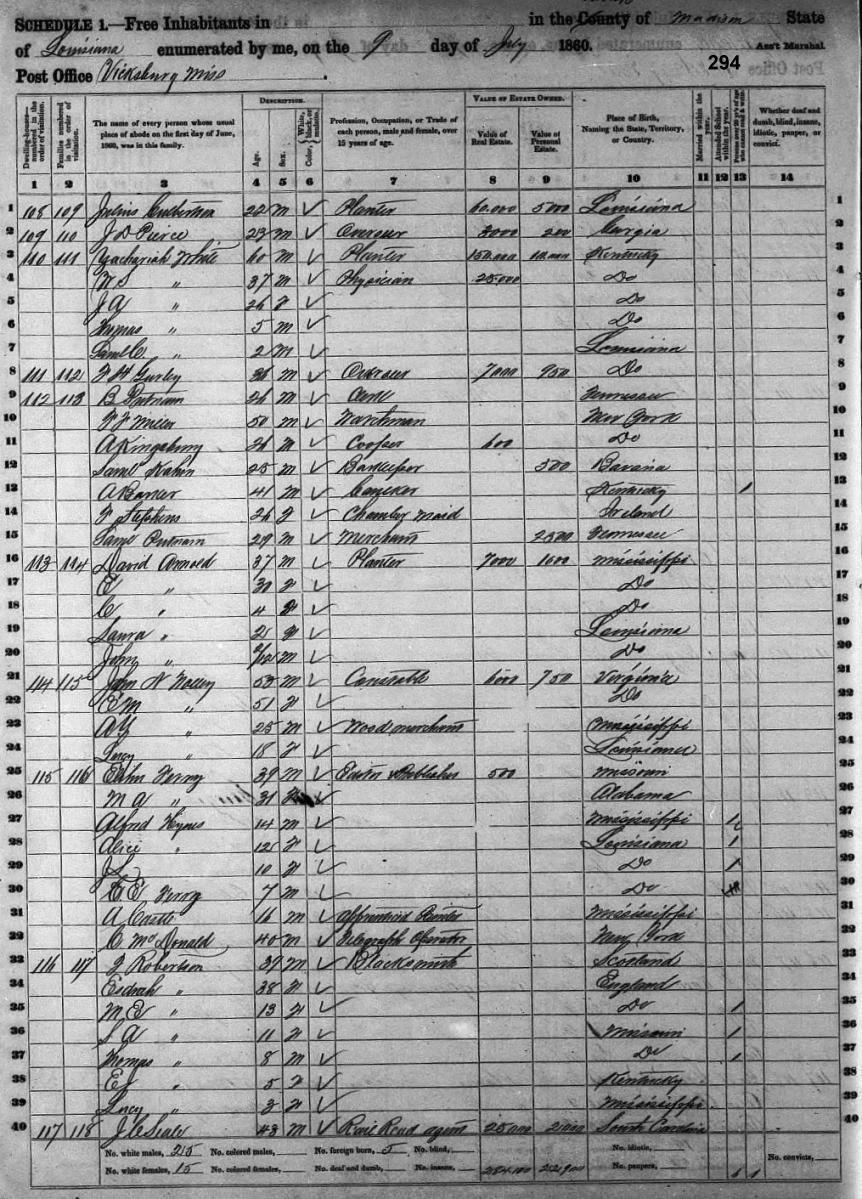 SCHEDULE 1.—Free Inhabitants in in the County of Madison State
of Louisiana enumerated by me, on the 9 day of July 1860. Ass't Marshal
Post Office Vicksburg Miss 294
Dwelling-houses—numbered in the order of visitation. Families numbered in the order of visitation. The name of every person whose usual place of abode on the first day of June, 1860, was in this family. DESCRIPTION. Age. Sex. Color, White, black, or mulatto. Profession, Occupation, or Trade of each person, male and female, over 15 years of age. VALUE OF ESTATE OWNED. Value of Real Estate. Value of Personal Estate. Place of Birth, Naming the State, Territory, or Country. Married within the year. Attended School within the year. Persons over 20 y'rs of age who cannot read & write. Whether deaf and dumb, blind, insane, idiotic, pauper, or convict.
1 2 3 4 5 6 7 8 9 10 11 12 13 14
1 108 109 Julius Culbertson 22 m Planter 60.000 5000 Louisiana 1
2 109 110 J D Pierce 23 m Overseer 3000 200 Georgia 2
3 110 111 Zachariah White 60 m Planter 150.000 Kentucky 3
4 W S " 37 m Physician 25.000 Do 4
5 J A " 26 f Do 5
6 Thomas " 5 m Do 6
7 Saml C " 2 m Louisiana 7
8 111 112 Gurley 36 m Overseer 7000 950 Do 8
9 112 113 B Putnam 26 m Clerk Tennessee 9
10 Miller 50 m Watchman New York 10
11 A Kingsbury 26 m Cooper 600 Do 11
12 Saml Kahn 25 m Barkeeper 300 Bavaria 12
13 A 41 m Kentucky 1 13
14 Stephens 26 f Chamber maid Ireland 14
15 Saml Putnam 29 m Merchant 2500 Tennessee 15
16 113 114 David Arnold 37 m Planter 7000 1600 Mississippi 16
17 E " 30 f Do 17
18 C " 4 f Do 18
19 Laura " 2 f Louisiana 19
20 John " m Do 20
21 114 115 John N 53 m Constable 6000 750 Virginia 21
22 E M " 51 f Do 22
23 A Y " 25 m Wood merchant Mississippi 23
24 Lucy " 18 f Louisiana 24
25 115 116 39 m Editor & Publisher 500 Missouri 25
26 M A " 31 f Alabama 26
27 Alfred Hynes 14 m Mississippi 1 27
28 Alice " 12 f Louisiana 1 28
29 J L " 10 f Do 1 29
30 C E 7 m Do 30
31 A Castle 16 m Apprenticed Printer Mississippi 31
32 C McDonald 40 m Telegraph Operator New York 32
33 116 117 J Robertson 39 m Blacksmith Scotland 33
34 " 38 f England 34
35 M E " 13 f Do 1 35
36 S A " 11 f Missouri 1 36
37 Thomas " 8 m Do 1 37
38 E J " 5 f Kentucky 38
39 Lucy " 3 f Mississippi 39
40 117 118 J C Seale 43 m Rail Road agent 25000 South Carolina 40
No. white males, 25 No. colored males, No. foreign born, 5 No. blind, No. idiotic, No. convicts,
No. white females, 15 No. colored females, No. deaf and dumb, No. insane, No. paupers,